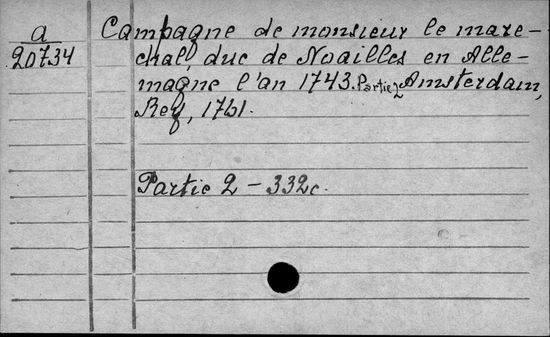 a
20734
Campagne de monsieur le mare-
chal, duc de Noailles en Alle-
magne l'an 1743. Partie 2 Amsterdam,
Rey, 1761.
Partie 2 - 332c.